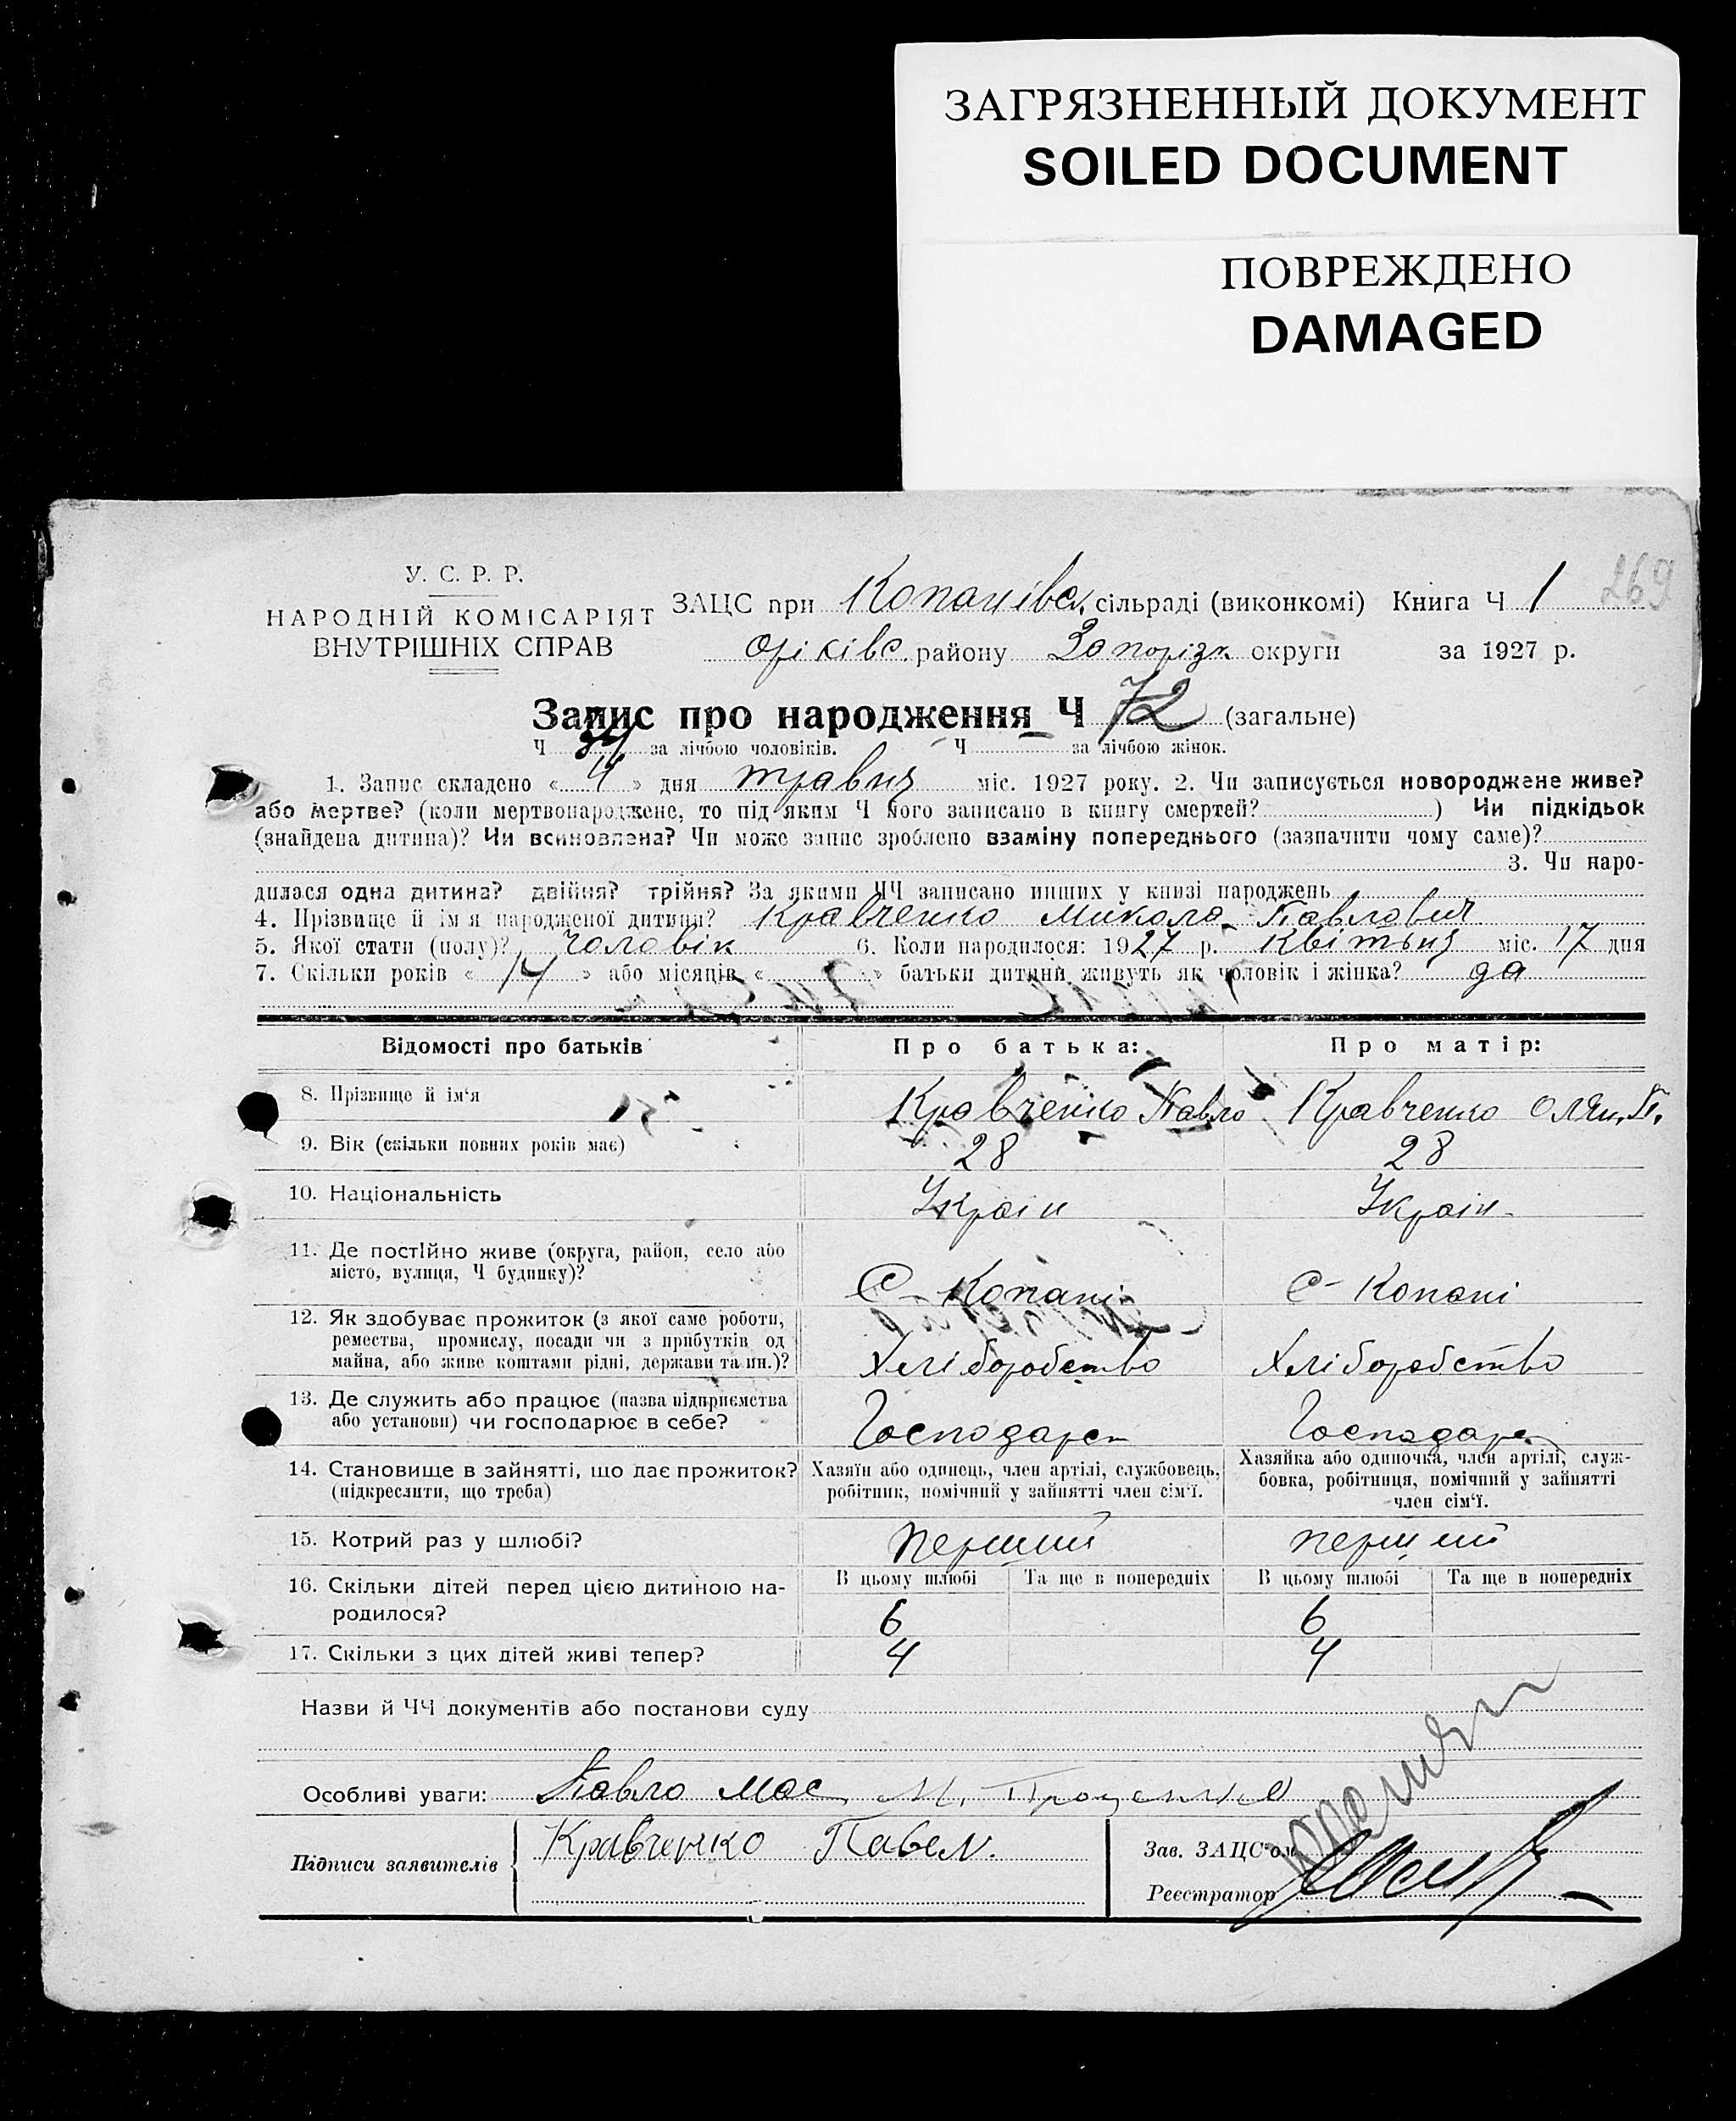 ЗАГРЯЗНЕННЫЙ ДОКУМЕНТ
SOILED DOCUMENT
ПОВРЕЖДЕНО
DAMAGED
269
У. С. Р. Р.
НАРОДНІЙ КОМІСАРІЯТ
ВНУТРІШНІХ СПРАВ
ЗАЦС при Копанівс. сільраді (виконкомі) Книга Ч 1
Оріхівс. району Запорізк округи за 1927 р.
Запис про народження Ч 72 (загальне)
Ч за лічбою чоловіків. Ч за лічбою жінок.
1. Запис складено « 4 » дня травня міс. 1927 року. 2. Чи записується новороджене живе?
або мертве? (коли мертвонароджене, то під яким Ч його записано в книгу смертей? ) Чи підкідьок
(знайдена дитина)? Чи всиновлена? Чи може запис зроблено взаміну попереднього (зазначити чому саме)?
3. Чи наро-
дилася одна дитина? двійня? трійня? За якими ЧЧ записано инших у книзі народжень
4. Прізвище й ім'я народженої дитини? Кравченко Микола Павлович
5. Якої стати (полу)? Чоловік 6. Коли народилося: 1927 р. Квітьня міс. 17 дня
7. Скільки років « 14 » або місяців « » батьки дитини живуть як чоловік і жінка? да
Відомості про батьків Про батька: Про матір:
8. Прізвище й ім'я Кравченко Павло Кравченко
9. Вік (скільки повних років має) 28 28
10. Національність Україн Україн-
11. Де постійно живе (округа, район, село або
місто, вулиця, Ч будинку)? С- Копані С- Копані
12. Як здобуває прожиток (з якої саме роботи,
ремества, промислу, посади чи з прибутків од
майна, або живе коштами рідні, держави та ин.)? Хліборобство Хліборобство
13. Де служить або працює (назва підприємства
або установи) чи господарює в себе? Господарст Господарст
14. Становище в зайнятті, що дає прожиток? Хазяїн або одинець, член артілі, службовець, Хазяйка або одиночка, член артілі, служ-
(підкреслити, що треба) робітник, помічний у зайнятті член сім'ї. бовка, робітниця, помічний у зайнятті
член сім'ї.
15. Котрий раз у шлюбі? перший перший
16. Скільки дітей перед цією дитиною на- В цьому шлюбі Та ще в попередніх В цьому шлюбі Та ще в попередніх
родилося? 6 6
17. Скільки з цих дітей живі тепер? 4 4
Назви й ЧЧ документів або постанови суду
Особливі уваги: Павло М. Проценко
Підписи заявителів Кравченко Павел. Зав. ЗАЦС'ом
Реєстратор